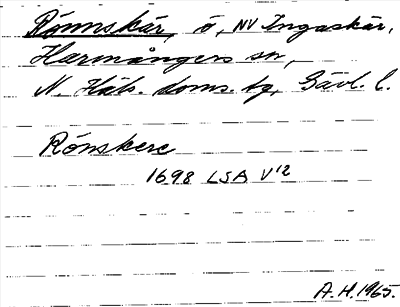 Rönnskär, ö, NV Ingaskär,
Harmångers sn,
N. Häls. doms. tg, Gävl. l.
Rönskere
1698 LSA V12
A.H. 1965.